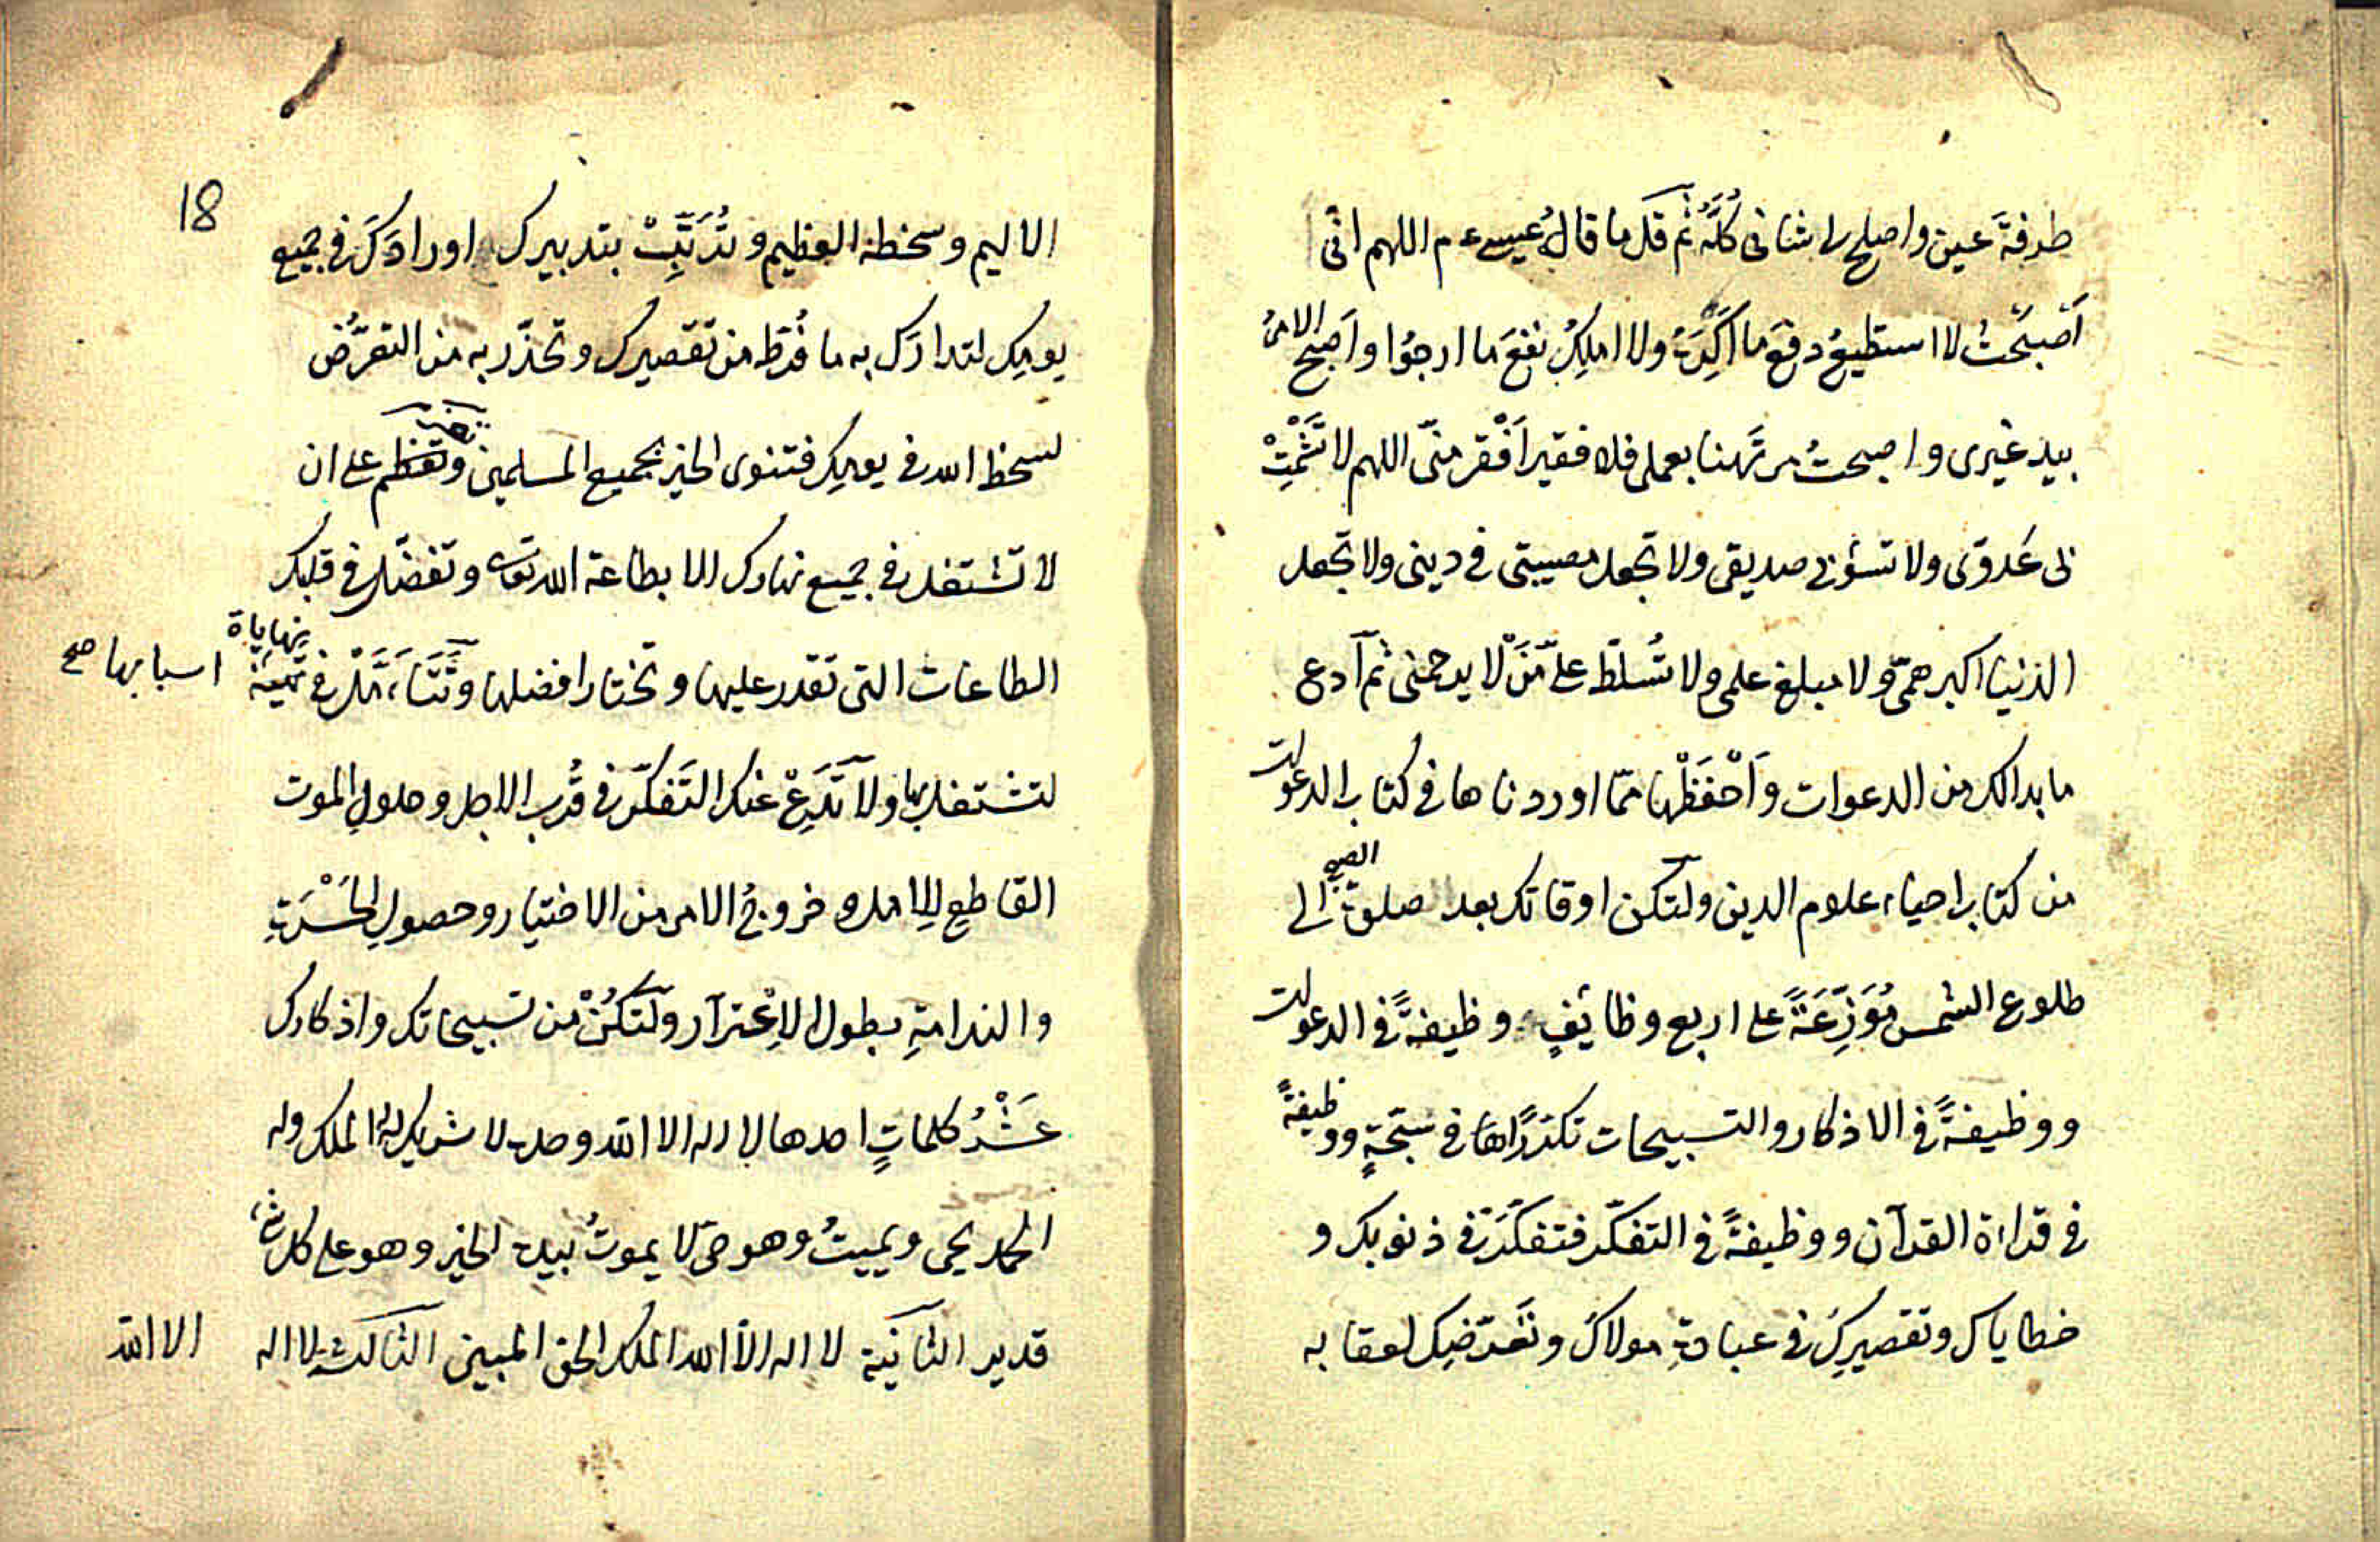 طرفةَ عين واصلح لى شانى كُلَّهُ ثم قل ما قالُ عيسى ع م اللهم انّى
اَصْبَحْتُ لا استطيعُ دفعَ ما اَكْرَهُ ولا املِكُ نفعَ ما ارجُوا واَصبح الامرُ
بيد غيرى و اصبحتُ مرتَهنا بعملى فلا فقيرَ اَفْقر منّى اللهم لا تُشْمِتْ
بى عَدوّى ولا تسؤبى صديقى ولا تجعل مصيبتى فى دينى ولا تجعل
الدنيا اكبر همّى ولا مبلغ علمى ولا تُسلّط علىّ مَنْ لا يرحمنى ثم اَدع
ما بدالك من الدعوات وَاَحْفَظْها ممّا اوردناها فى كتاب الدعوات
من كتاب احياء علوم الدين ولتكن اوقاتك بعد صلوة الصبح الى
طلوع الشمس مُوَزَّعَةً على اربع وظايفٍ وظيفةً فى الدعوات
ووظيفةً فى الاذكار والتسبيحات تكرّراها فى سَبْحَةٍ ووظيفةً
فى قراءة القرآن ووظيفةً فى التفكّر فتفكّر فى ذنوبك و
خطاياك وتقصيركَ فى عبادةِ مولاكَ وتَعرّضِك لعقابه
18
الاليم وسخطه العظيم وتُرَتِّبْ بتدبيرك اورادَكَ فى جميع
يومك لتدارَك به ما فُرّط من تقصيرك وتحذّر به من التعرُّض
لسخط الله فى يومك فتنوى الخير بجميع المسلمين وتعظم على ان
لا تشتغل فى جميع نهارك الا بطاعة الله تعالى وتفضّل فى قلبك
الطاعات التى تقدر عليها وتختار افضلها وتَتَاَمَّلْ فى تهيئة اسبابها صح
لتشتغل بها ولا تَدَعْ عنك التَفكّر فى قُربِ الاجل وحلولِ الموت
القاطعِ للامل و خروجُ الامر من الاختيار وحصولِ الحَسْرَتِ
والندامةِ بطول الاِغْترَار ولتكُنْ من تسبيحاتك واذكارك
عَشْرُ كلماتٍ احدها لا اله الا الله وحده لا شريك له له الملك وله
الحمد يحيى ويميتُ وهو حىّ لا يموتُ بيده الخير وهو على كل شئ
قدير الثانية لا اله الاّ الله الملك الحق المبين الثالثة لا اله
الا الله